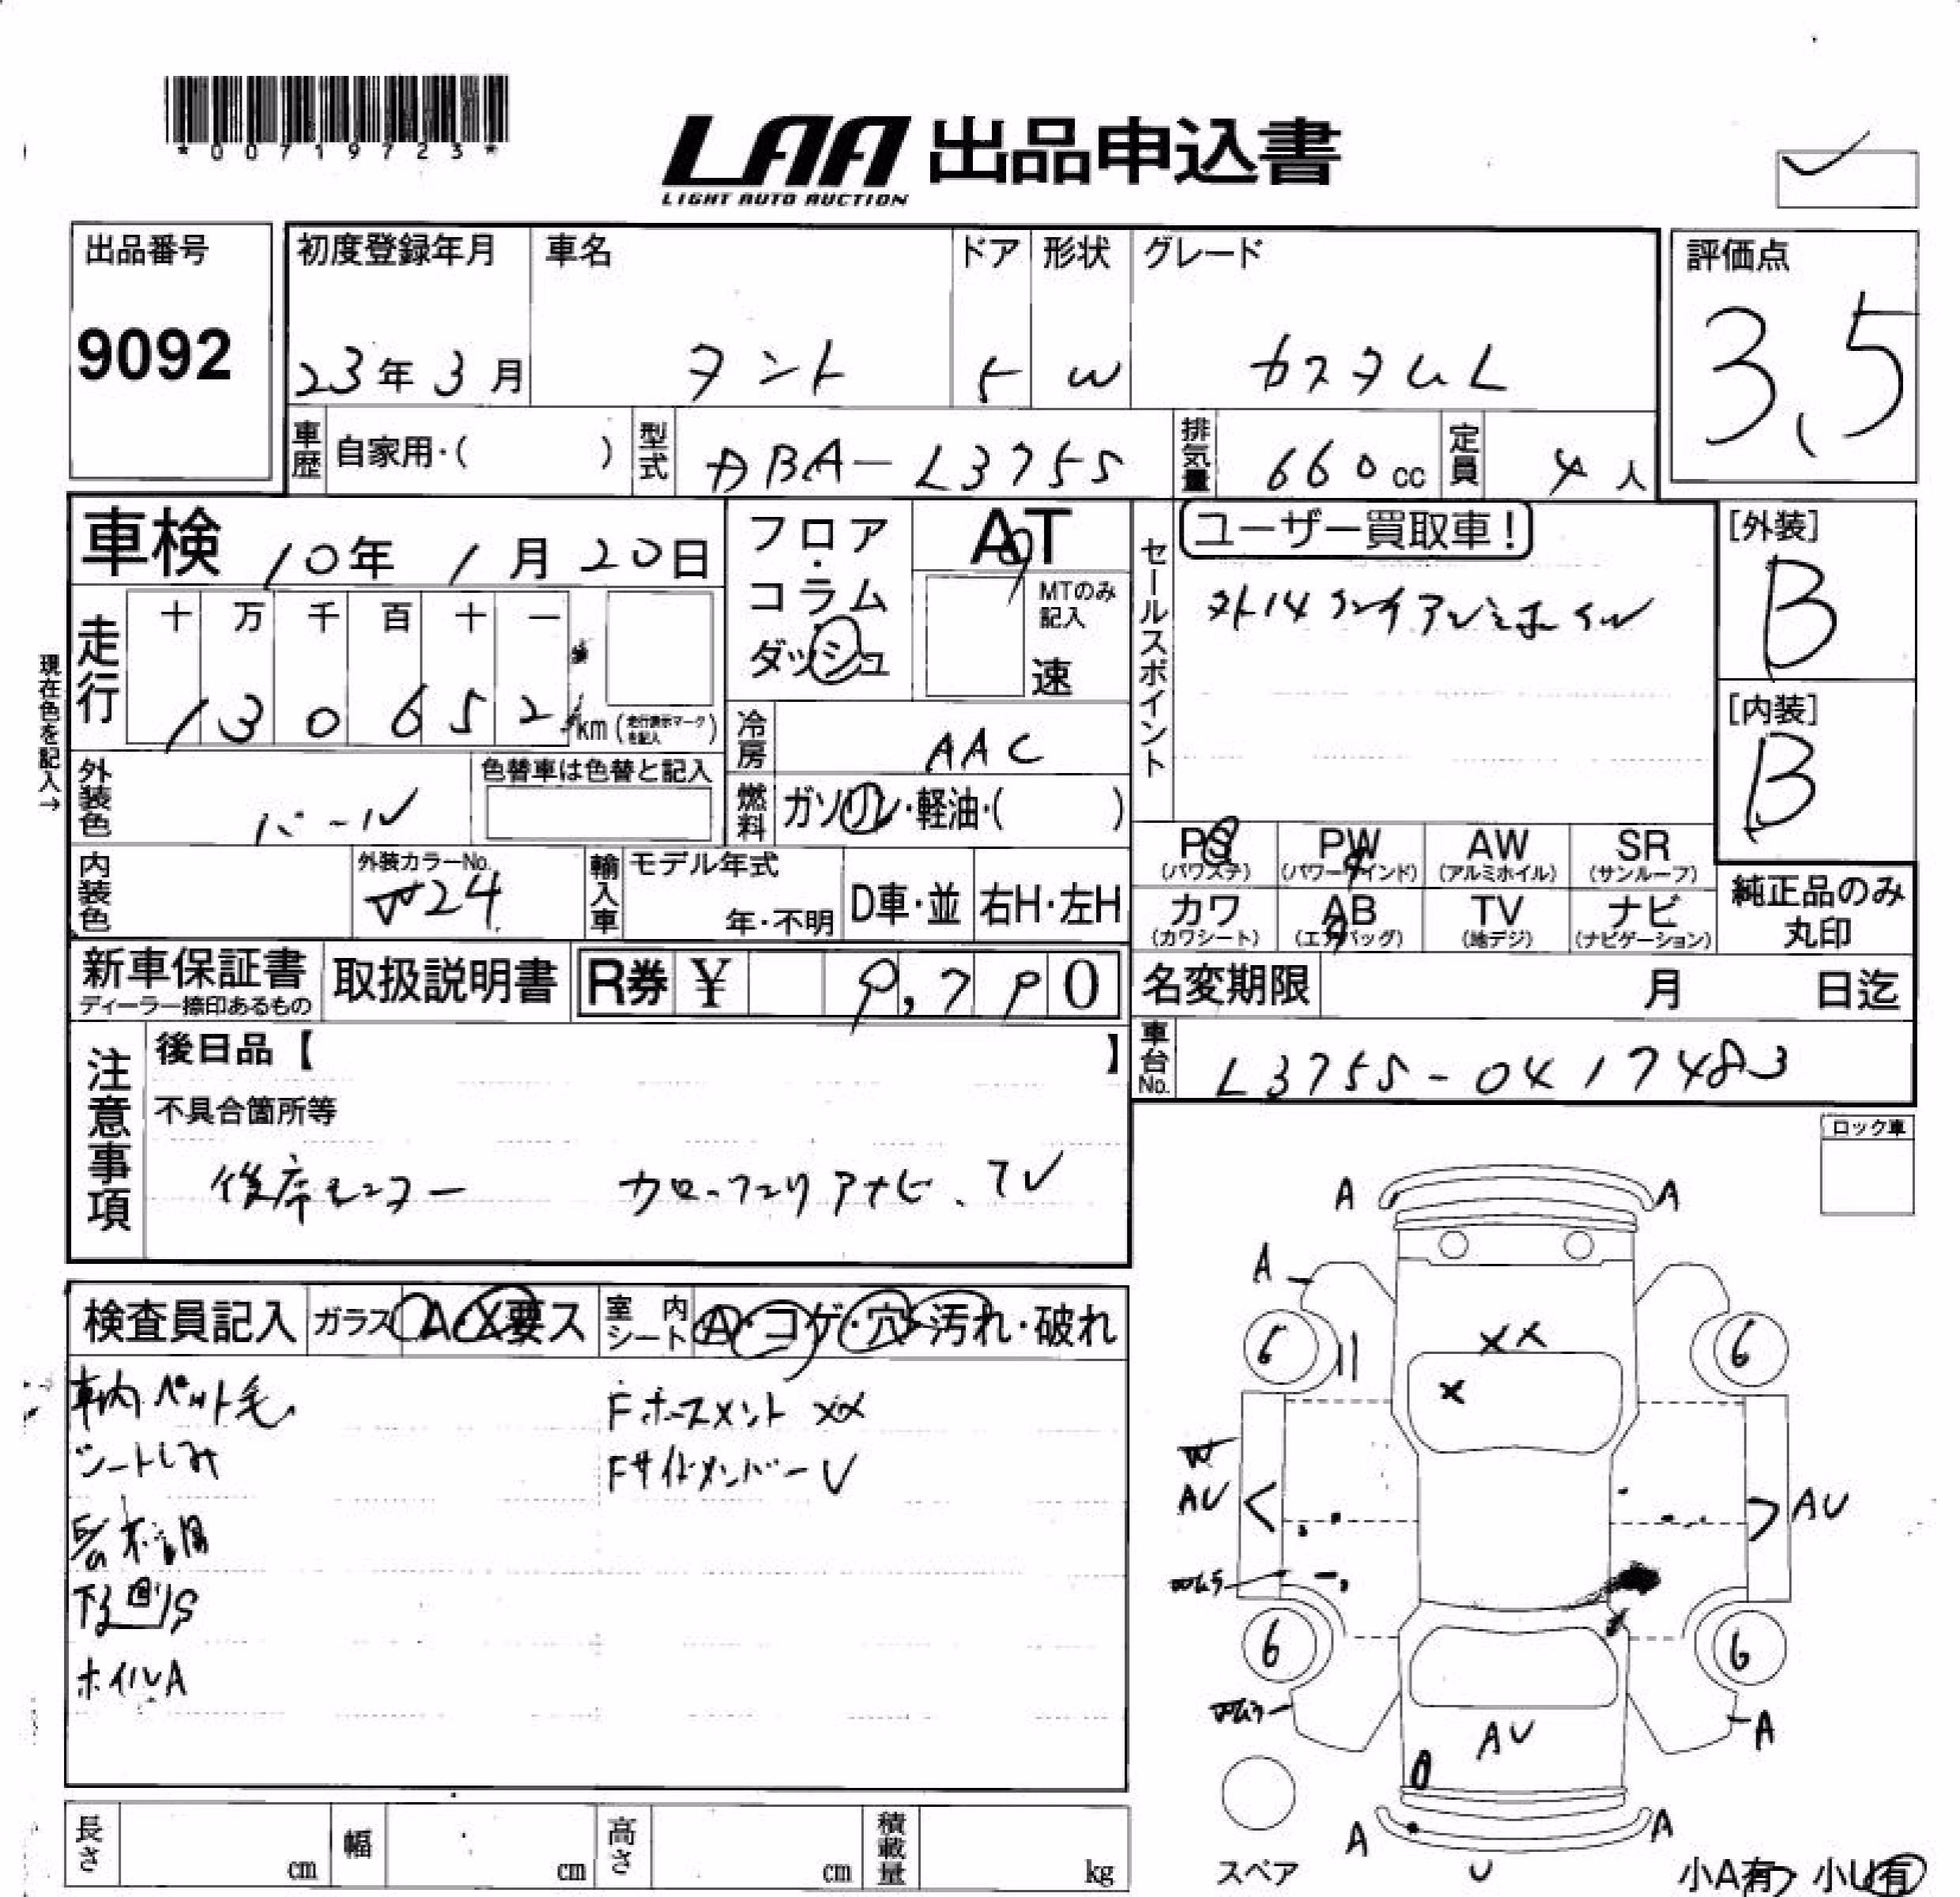 *00719723*
LAA 出品申込書
LIGHT AUTO AUCTION
出品番号
9092
初度登録年月
23年3月
車名
タント
ドア
5
形状
W
グレード
カスタムL
評価点
3.5
車歴
自家用・( )
型式
DBA-L375S
排気量
660cc
定員
4人
車検
10年1月20日
フロア・コラム
ダッシュ
AT
MTのみ記入
速
セールスポイント
ユーザー買取車!
外14インチアルミホイル
[外装]
B
[内装]
B
現在色を記入→
走行
十万千百十一
130652
km (走行表示マークを記入)
冷房
AAC
外装色
パール
色替車は色替と記入
燃料
ガソリン・軽油・( )
内装色
外装カラーNo.
W24
輸入車
モデル年式
年・不明
D車・並
右H・左H
PS
(パワステ)
PW
(パワーウインド)
AW
(アルミホイル)
SR
(サンルーフ)
カワ
(カワシート)
AB
(エアバッグ)
TV
(地デジ)
ナビ
(ナビゲーション)
純正品のみ
丸印
新車保証書
ディーラー捺印あるもの
取扱説明書
R券 ¥ 9,790
名変期限
月 日迄
車台No.
L375S-0417483
注意事項
後日品【 】
不具合箇所等
後席モニター カロッツェリアナビ、TV
ロック車
検査員記入
ガラス
A・X要ス
室内シート
A・コゲ・穴・汚れ・破れ
車内ペット毛
シートしみ
下回りS
ホイルA
Fホースメント XX
Fサイドメンバー U
A
A
A
6
6
XX
X
AU
AU
6
6
A
AU
A
A
U
スペア
小A有 小U有
長さ
cm
幅
cm
高さ
cm
積載量
kg